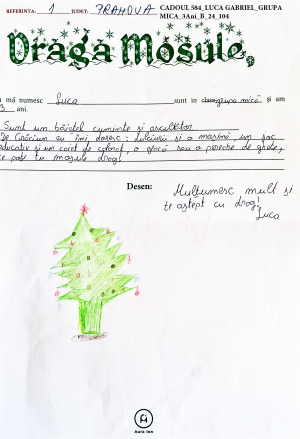 REFERINTA: 1 JUDET: PRAHOVA CADOUL 584_LUCA GABRIEL_GRUPA
MICA_3Ani_B_24_104
Dragă Moșule,
mă numesc Luca sunt in clasa/grupa mică și am
3 ani.
Sunt un băiețel cuminte și ascultător.
De Crăciun eu îmi doresc: dulciuri și o mașină, un joc
educativ și un caiet de colorat, o geacă sau o pereche de ghete,
ce poți tu moșule drag!
Desen:
Mulțumesc mult și
te aștept cu drag!
Luca
Aura Ion